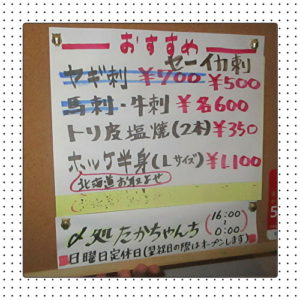 おすすめ
セーイカ刺
ヤギ刺 ¥700 ¥500
馬刺・牛刺 ¥各600
トリ皮塩焼(2本) ¥350
ホッケ半身(Lサイズ) ¥1,100
北海道お取よせ
〆処 たかちゃんち
16:00
〜
0:00
日曜日定休日(翌祝日の際はオープンします)